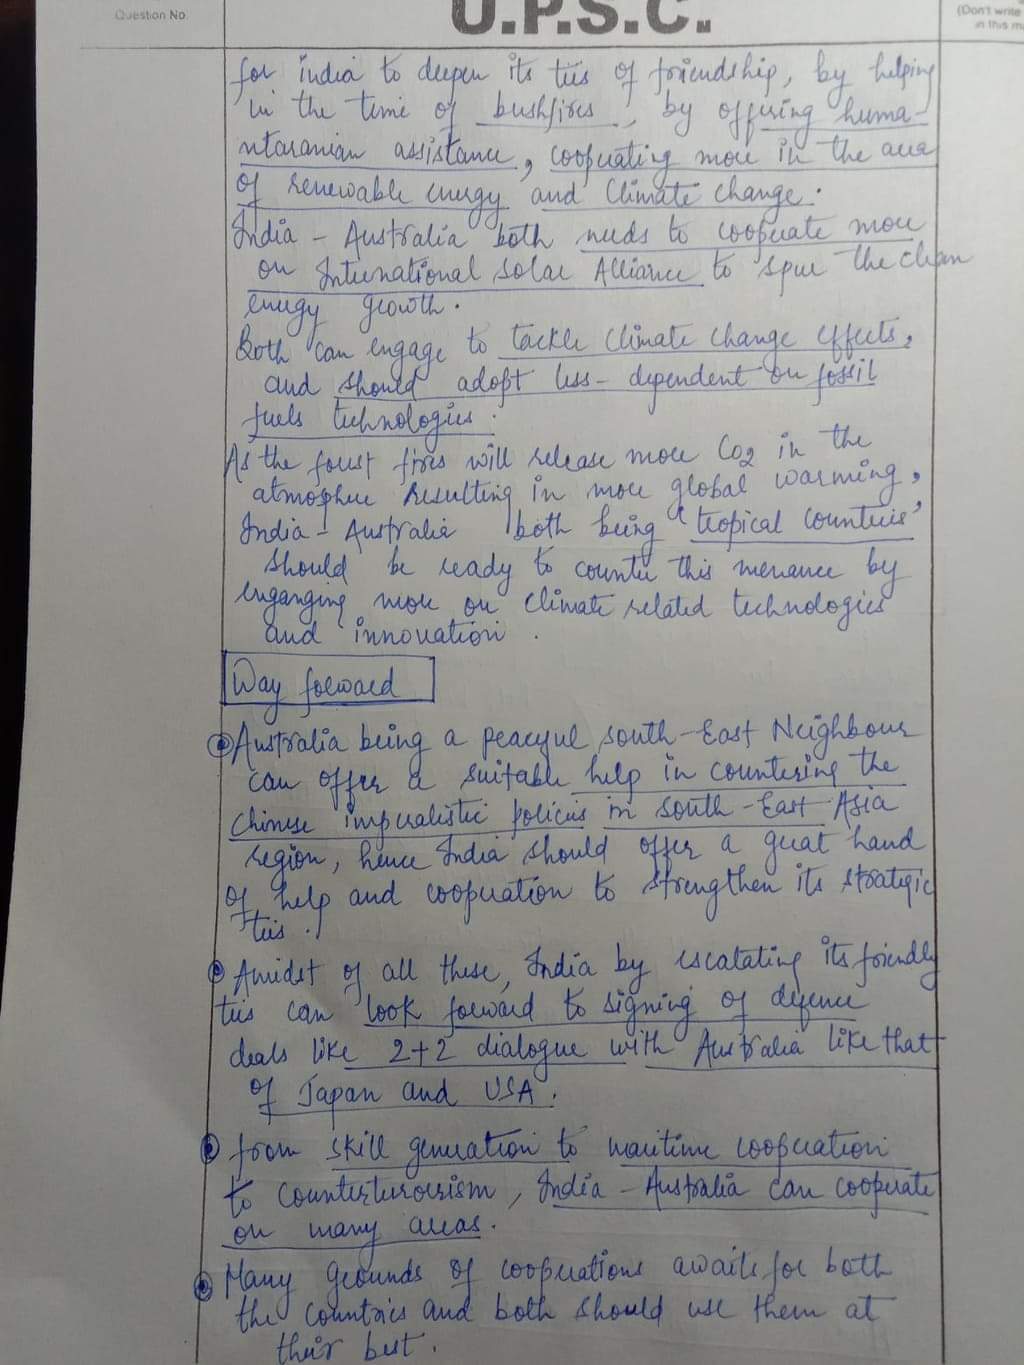 Question No.
U.P.S.C.
(Don't write
in this ma
for india to deepen its ties of friendship, by helping
in the time of bushfires, by offering huma-
ntaranian assistance, cooperating more in the area
of renewable energy and Climate change.
India - Australia both needs to cooperate more
on International Solar Alliance to spur the clean
energy growth.
Both can engage to tackle climate change effects,
and should adopt less-dependent on fossil
fuels technologies.
As the forest fires will release more CO2 in the
atmosphere resulting in more global warming,
India - Australia both being 'tropical countries'
should be ready to counter this menance by
enganging more on climate related technologies
and innovation.
Way forward
Australia being a peaceful south-East Neighbour
can offer a suitable help in countering the
Chinese imperialistic policies in south-East Asia
region, hence India should offer a great hand
of help and cooperation to strengthen its strategic
ties.
Amidst of all these, India by escatating its friendly
ties can look forward to signing of defence
deals like 2+2 dialogue with Australia like that
of Japan and USA.
from skill generation to maritime cooperation
to counterterrorism, India - Australia can cooperate
on many areas.
Many grounds of cooperations awaits for both
the countries and both should use them at
their best.